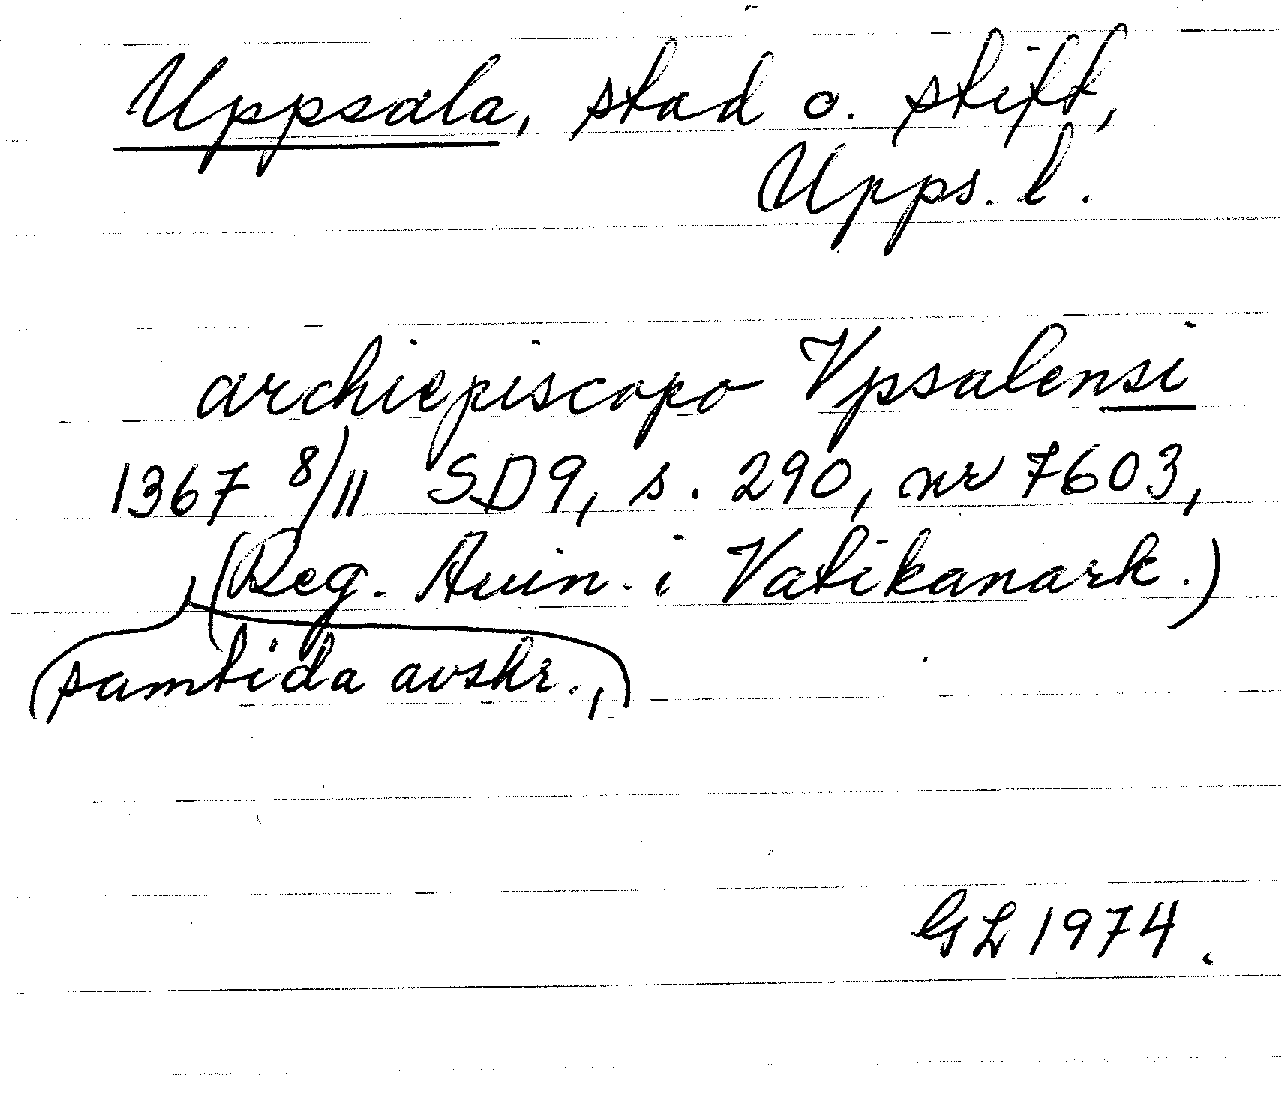 Uppsala, stad o. stift,
Upps. l.
archiepiscopo Vpsalensi
1367 8/11 SD9, s. 290, nr 7603,
(Reg. Avin. i Vatikanark.)
(samtida avskr.,)
GL 1974.